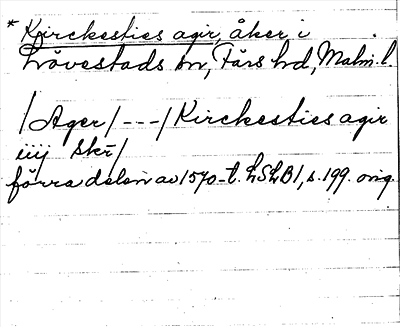 * Kirckesties agir, åker i
Lövestads sn, Färs hd, Malm. l.
/Ager/ --- / Kirckesties agir
iiij Skr/
förra delen av 1570-t. LSLB1, s. 199. orig.